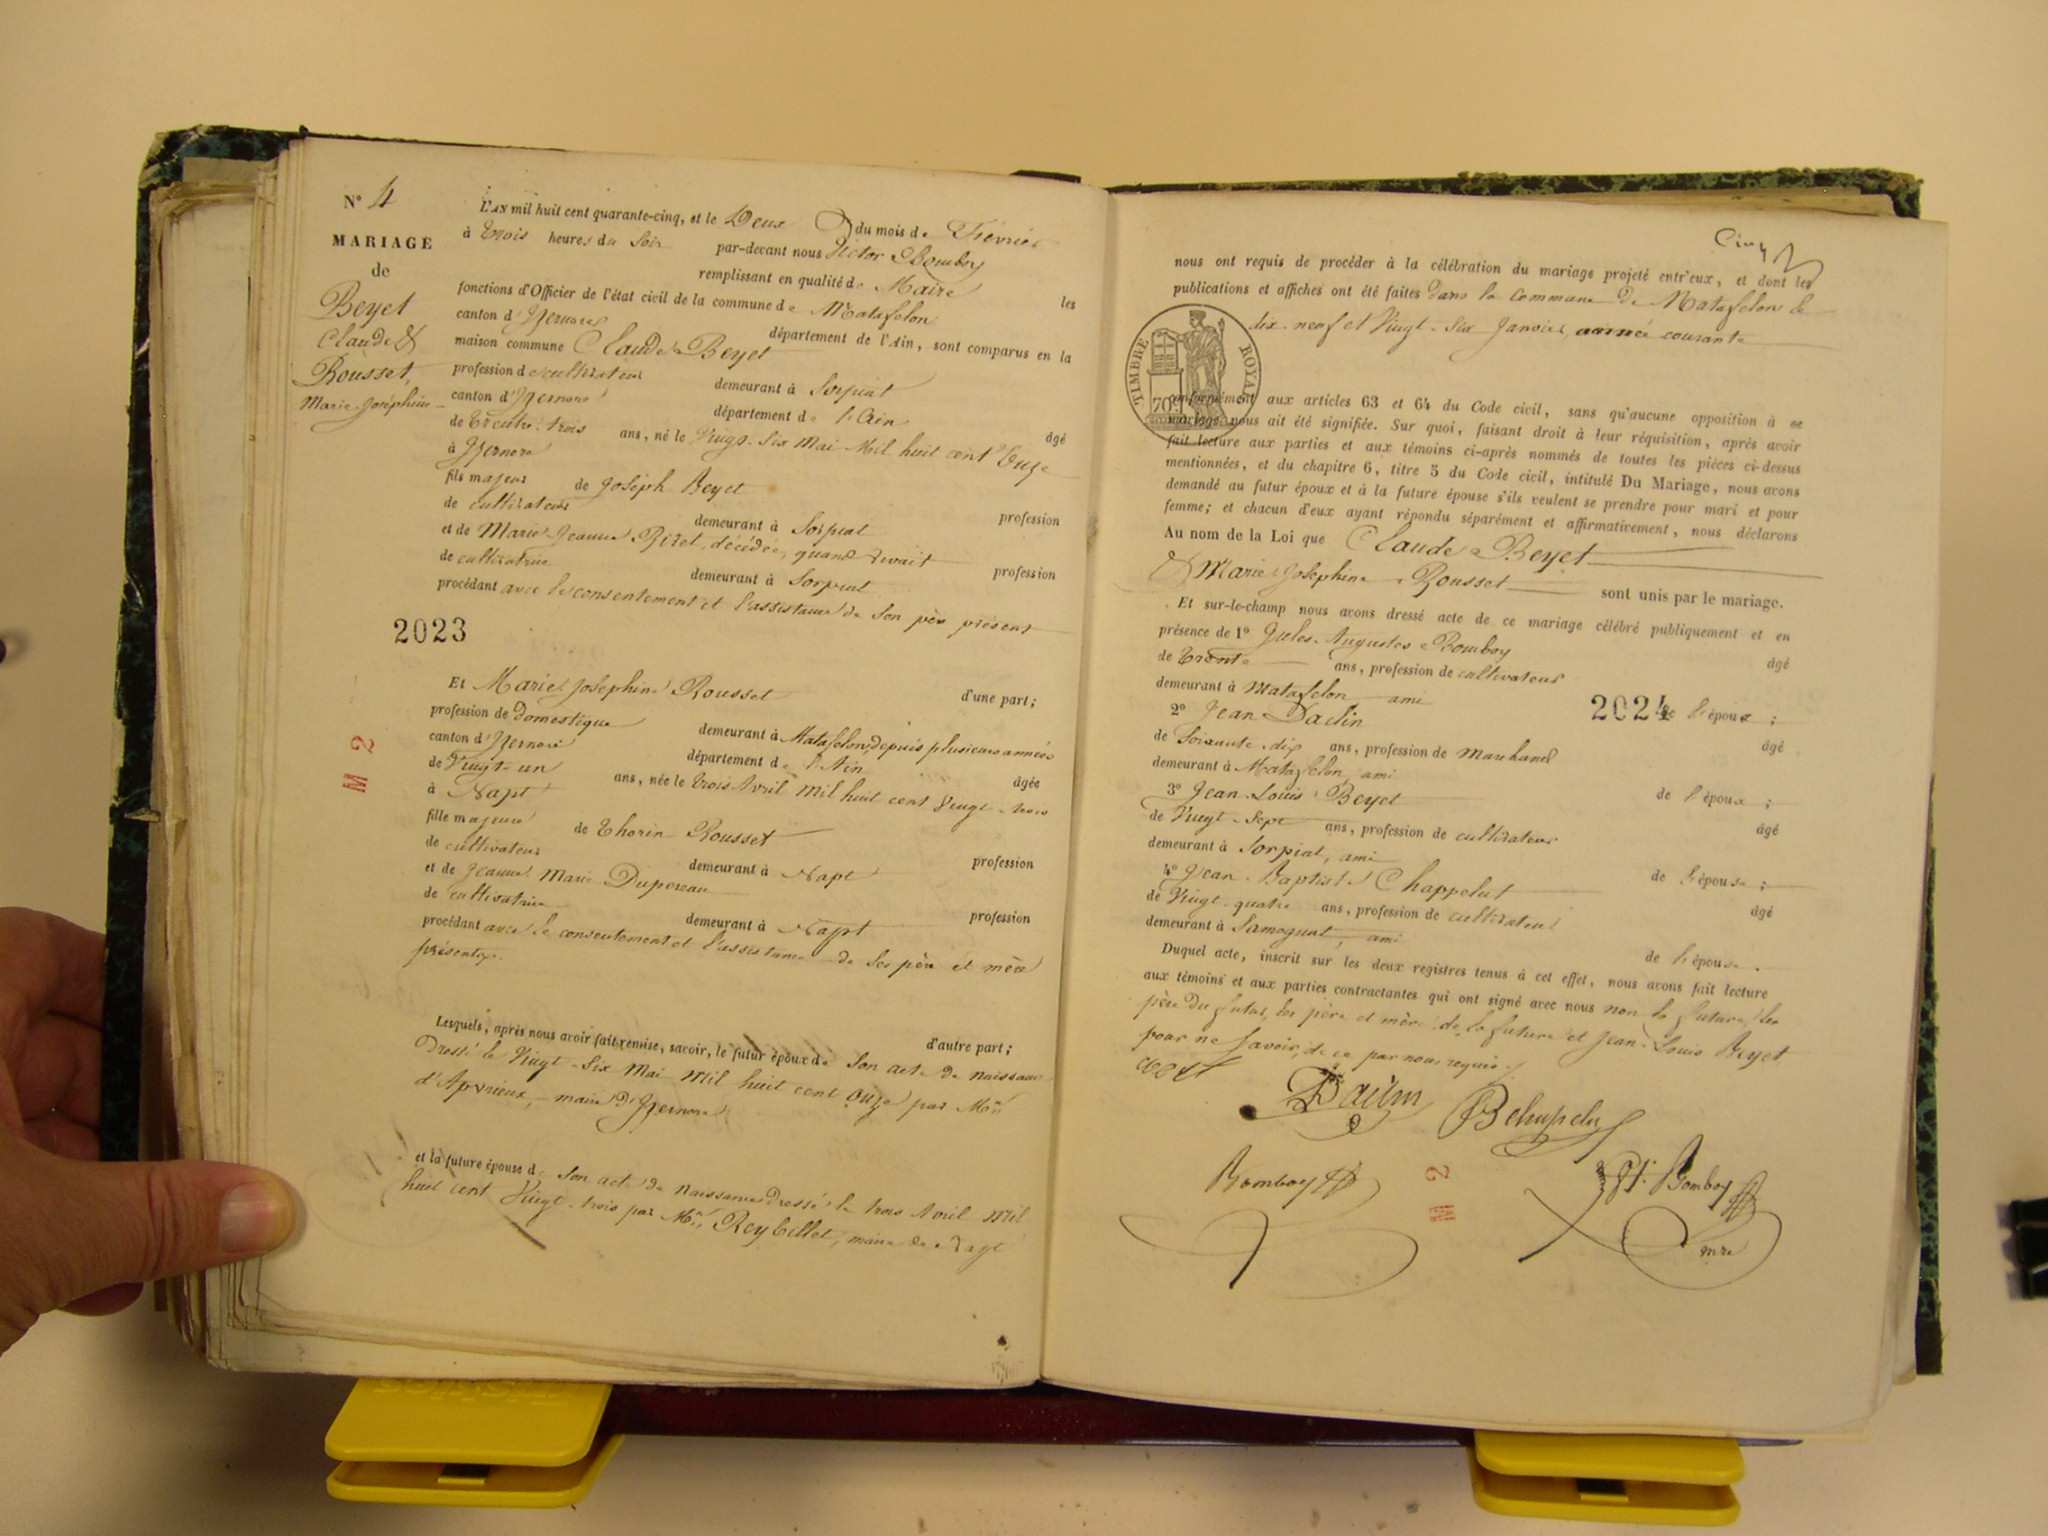 N° 4
MARIAGE
de
Beyet
Claude &
Rousset,
Marie Joséphine
L'AN mil huit cent quarante-cinq, et le Deux du mois de Février
à trois heures du Soir par-devant nous Victor Bomboy
remplissant en qualité de Maire les
fonctions d'Officier de l'état civil de la commune de Matafelon
canton d'Izernore département de l'Ain, sont comparus en la
maison commune Claude Beyet
profession de cultivateur demeurant à Sorpiat
canton d'Izernore département de l'Ain âgé
de trente-trois ans, né le Vingt-six Mai Mil huit cent Onze
à Izernore
fils majeur de Joseph Beyet profession
de cultivateur demeurant à Sorpiat
et de Marie Jeanne décédée, quand vivait profession
de cultivatrice demeurant à Sorpiat
procédant avec le consentement et l'assistance de Son père présent
2023
d'une part;
Et Marie Josephine Rousset
profession de domestique demeurant à Matafelon, depuis plusieurs années
canton d'Izernore département de l'Ain âgée
de Vingt-un ans, née le trois Avril Mil huit cent Vingt-trois
à Napt
fille majeure de Thorin Rousset profession
de cultivateur demeurant à Napt
et de Jeanne Marie Dupereau profession
de cultivatrice demeurant à Napt
procédant avec le consentement et l'assistance de Ses père et mère
présents.
d'autre part;
Lesquels, après nous avoir fait remise, savoir, le futur époux de Son acte de naissance
Dressé le Vingt-Six Mai Mil huit cent onze par Mr
maire d'Izernore
et la future épouse de Son acte de naissance Dressé le trois Avril Mil
huit cent Vingt-trois par Mr Reybillet, maire de Napt
M 2
Cinq
nous ont requis de procéder à la célébration du mariage projeté entr'eux, et dont les
publications et affiches ont été faites dans la Commune de Matafelon le
dix-neuf et Vingt-Six Janvier, année courante
TIMBRE ROYAL
70
conformément aux articles 63 et 64 du Code civil, sans qu'aucune opposition à ce
mariage nous ait été signifiée. Sur quoi, faisant droit à leur réquisition, après avoir
fait lecture aux parties et aux témoins ci-après nommés de toutes les pièces ci-dessus
mentionnées, et du chapitre 6, titre 5 du Code civil, intitulé Du Mariage, nous avons
demandé au futur époux et à la future épouse s'ils veulent se prendre pour mari et pour
femme; et chacun d'eux ayant répondu séparément et affirmativement, nous déclarons
Au nom de la Loi que Claude Beyet
& Marie Josephine Rousset sont unis par le mariage.
Et sur-le-champ nous avons dressé acte de ce mariage célébré publiquement et en
présence de 1° Jules Auguste Bomboy âgé
de trente ans, profession de cultivateur
demeurant à Matafelon ami de l'époux;
2024
2° Jean Daclin âgé
de Soixante-dix ans, profession de Marchand
demeurant à Matafelon, ami de l'époux;
3° Jean Louis Beyet âgé
de Vingt-Sept ans, profession de cultivateur
demeurant à Sorpiat, ami de l'épouse;
4° Jean Baptiste Chappelut âgé
de Vingt-quatre ans, profession de cultivateur
demeurant à Samognat, ami de l'épouse.
Duquel acte, inscrit sur les deux registres tenus à cet effet, nous avons fait lecture
aux témoins et aux parties contractantes qui ont signé avec nous non la future, les
père du futur, les père et mère de la future et Jean Louis Beyet
pour ne Savoir, de ce par nous requis.
Bomboy
Vr. Bomboy
mre
M 2